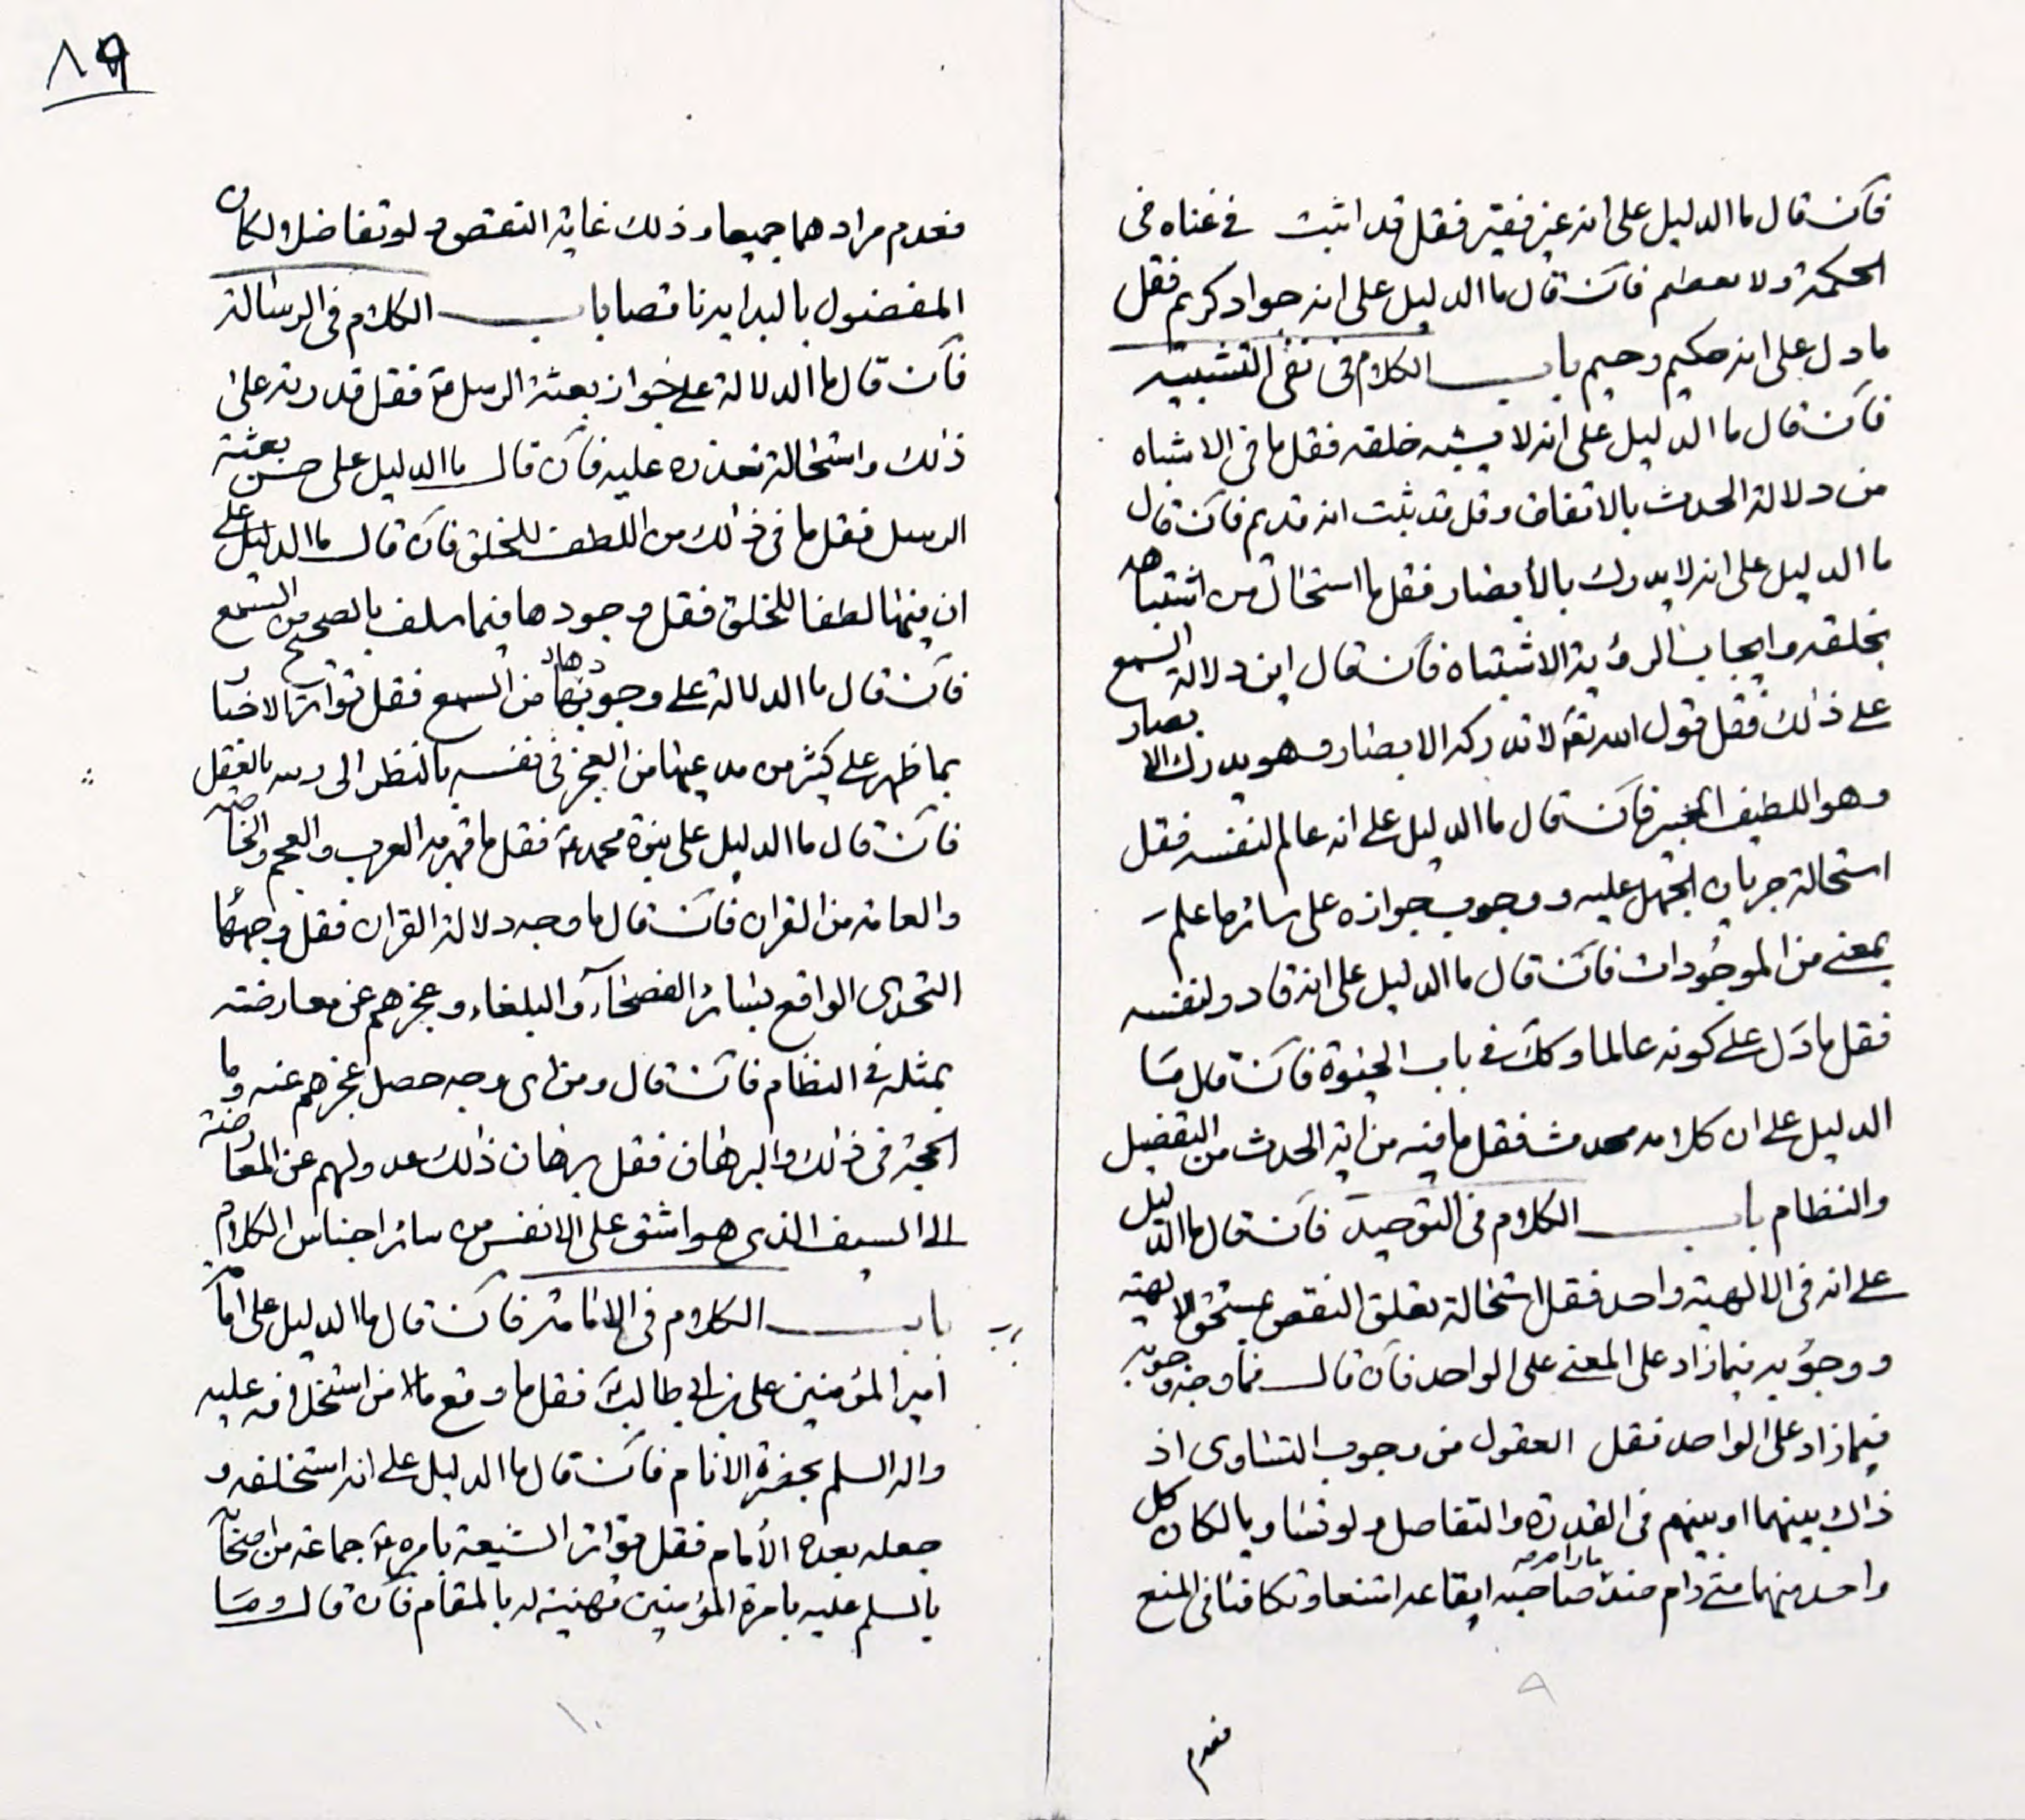 فان قال ما الدليل على انه غير فقير فقل قد اثبت في غناه في
الحكمة ولا معطم فان قال ما الدليل على انه جواد كريم فقل
ما دل على انه حكيم رحيم باب الكلام في نفى التشبيه
فان قال ما الدليل على انه لا يشبه خلقه فقل ما في الاشباه
من دلالة الحدث بالاتفاق وقل قد يثبت انه قديم فان قال
ما الدليل على انه لا يدرك بالأبصار فقل ما استحال من اشتباهه
بخلقه وايجاب الرؤية الاشتباه فان قال اين دلالة السمع
على ذلك فقل قول الله تعه لا تدركه الابصار وهو يدرك الابصار
وهو اللطيف الخبير فان قال ما الدليل على انه عالم لنفسه فقل
استحالة جريان الجهل عليه ووجوب جوازه على سائر ما علم
بمعنى من الموجودات فان قال ما الدليل على انه قادر لنفسه
فقل ما دل على كونه عالما وكك في باب الحيوة فان قال ما
الدليل على ان كلامه محدث فقل ما فيه من اية الحدث من التفصيل
والنظام باب الكلام في التوحيد فان قال ما الدليل
على انه في الالهية واحد فقل استحالة تعلق النقص بمستحق الالهية
ووجوبه فيما زاد على المعنى على الواحد فان قال فما وجه وجوبه
فيما زاد على الواحد فقل العقول من وجوب التساوى اذ
ذاك بينهما او بينهم في القدرة والتفاصل ولو تساويا لكان كل
واحد منهما متى دام ضد ما رامه صاحبه ايقاعه امتنعا وتكافئا في المنع
فعدم
٩
٨٩
فعدم مرادهما جميعا وذلك غاية النقص ولو تفاضلا ولكان
المفضول بالبداية ناقصا باب الكلام في الرسالة
فان قال ما الدلالة على جواز بعثة الرسل منه فقل قدرته على
ذلك واستحالة تعذره عليه فان قال ما الدليل على حسن بعثة
الرسل فقل ما في ذلك من اللطف للخلق فان قال ما الدليل على
ان فيها لطفا للخلق فقل وجودها فيما سلف بالصحيح من السمع
فان قال ما الدلالة على وجودها من السمع فقل تواتر الاخبار
بما ظهر على كثير من مدعيها من العجز في نفسه بالنظر الى بالعقل
فان قال ما الدليل على نبوة محمد ع فقل ما قهر به العرب والعجم والخاصة
والعامة من القران فان قال ما وجه دلالة القران فقل وجهها
التحدى الواقع بسائر الفصحاء والبلغاء وعجزهم عن معارضته
بمثله في النظام فان قال ومن اى وجه حصل عجزهم عنه وما
الحجة في ذلك والبرهان فقل برهان ذلك عدولهم عن المعارضة
الى السيف الذى هو اشق على الانفس من سائر اجناس الكلام
باب الكلام في الامامة فان قال ما الدليل على امامة
امير المؤمنين على بن ابى طالب ع فقل ما وقع من استخلافه عليه
واله السلم بحضرة الانام فان قال ما الدليل على انه استخلفه و
جعله بعده الأمام فقل تواتر الشيعة بامره ع جماعة من اصحابه
بالسلم عليه بامرة المؤمنين وتهنيته له بالمقام فان قال وما
١٠